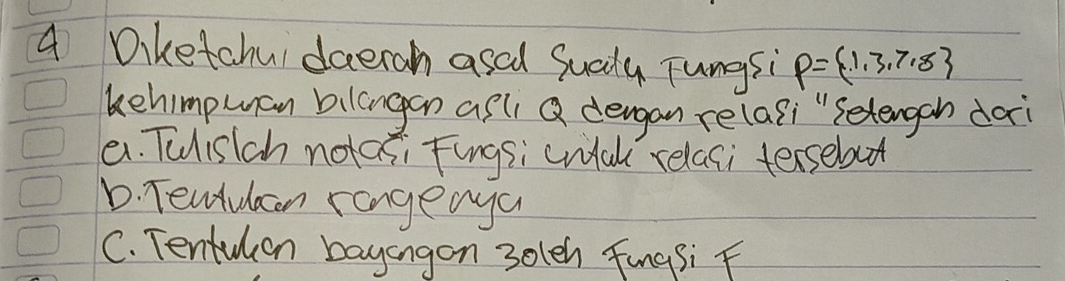 4 Diketahui daerah asal suatu Fungsi p={1.3.7.8}
kehimpunan bilangan asli Q dengan relasi "setengah dari
a. Tulislah notasi Fungsi untuk relasi tersebut
b. Tentukan rangenya
C. Tentukan bayangan 3 oleh fungsi F